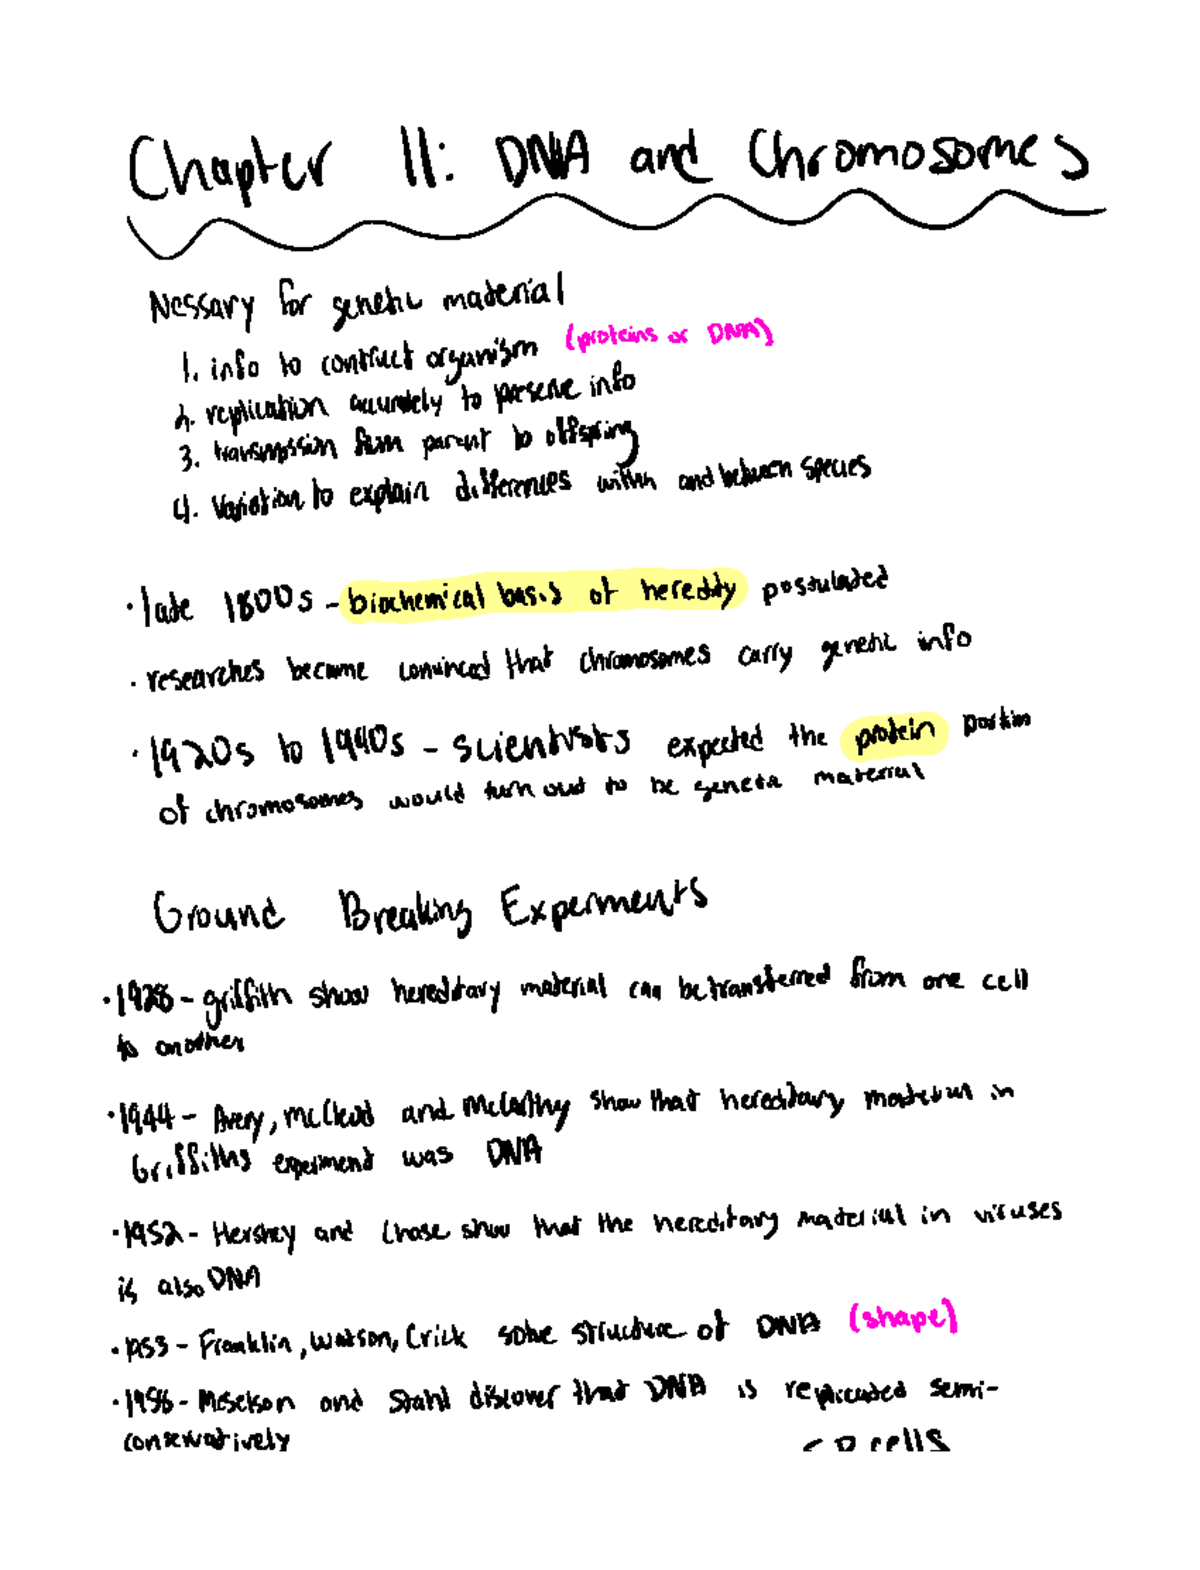 Chapter 11: DNA and Chromosomes
Nessary for genetic material
1. info to contruct organism (proteins or DNA)
2. replication accurately to preserve info
3. transmission from parent to offspring
4. Variation to explain differences within and between species
· late 1800s - biochemical basis of heredity postulated
· researches became convinced that chromosomes carry genetic info
· 1920s to 1940s - scientists expected the protein portion
of chromosomes would turn out to be genetic material
Ground Breaking Experments
· 1928 - griffith show hereditary material can be transferred from one cell
to another
· 1944 - Avery, McCleod and McCarthy show that hereditary material in
Griffiths experiment was DNA
· 1952 - Hershey and Chase show that the hereditary material in viruses
is also DNA
· 1953 - Franklin, Watson, Crick solve structure of DNA (shape)
· 1958 - Meselson and Stahl discover that DNA is replicated semi-
conservatively
cells